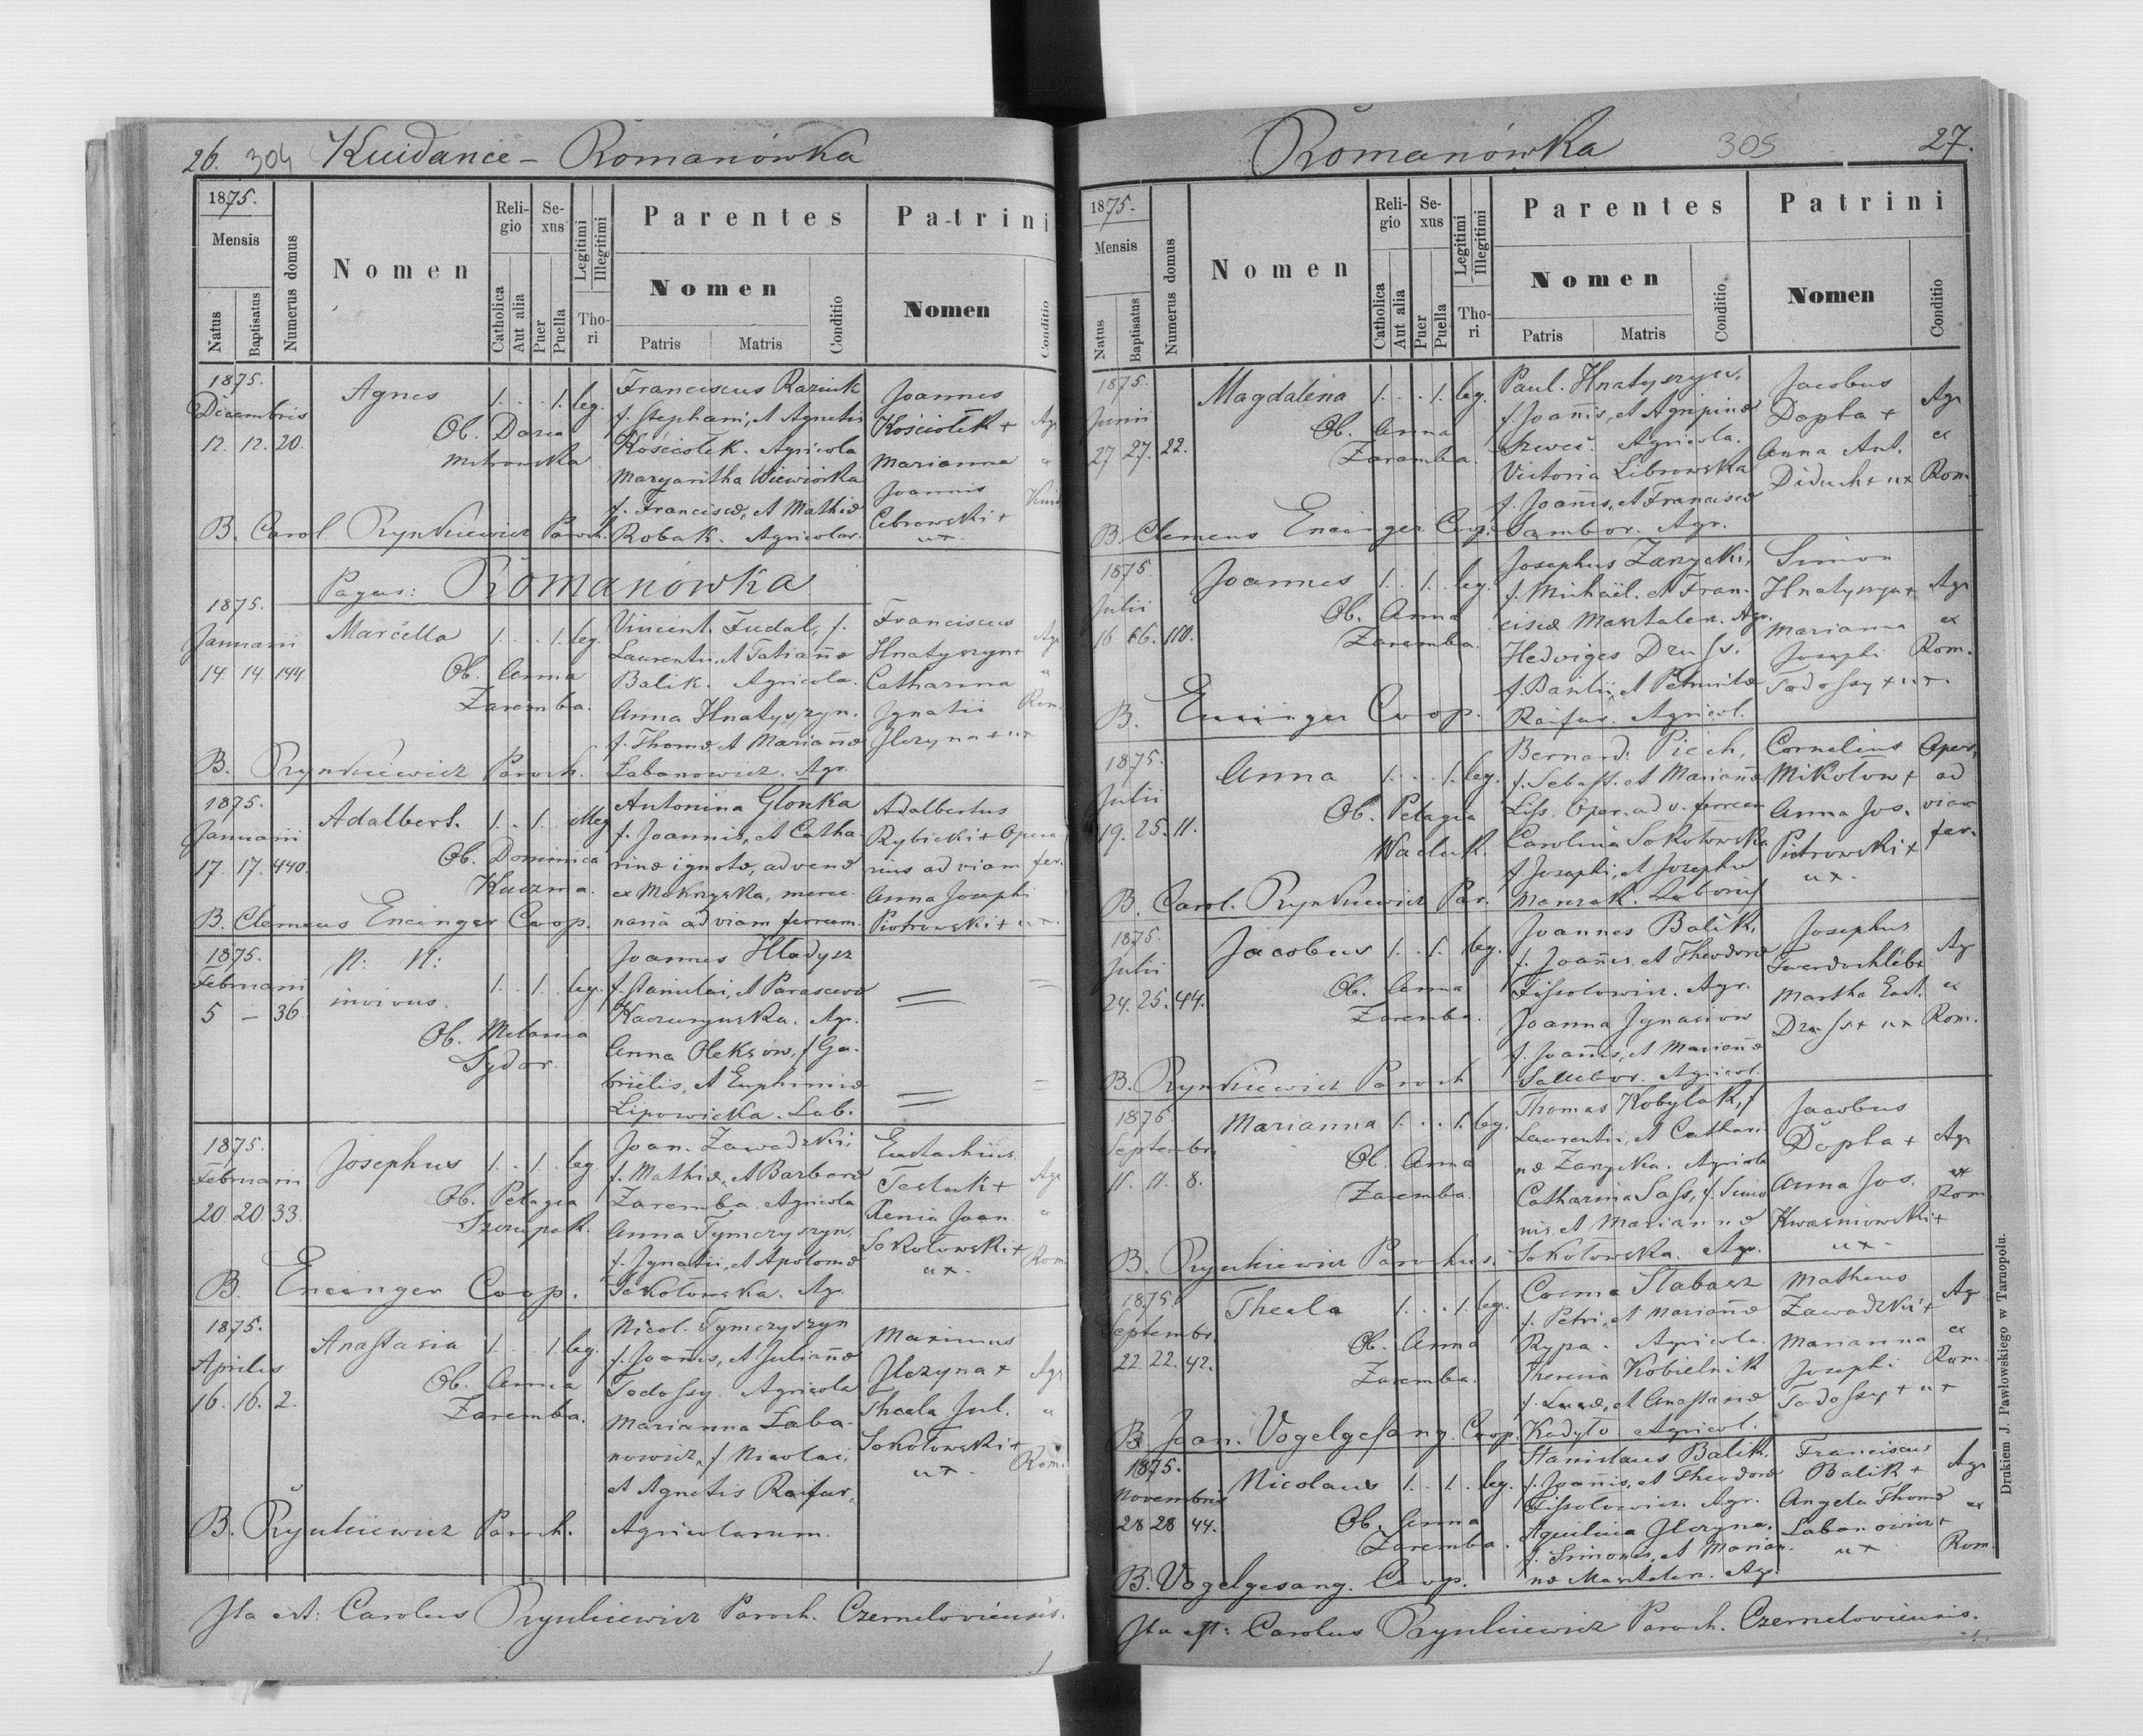 26. 304 Kuidance - Romanówka
1875.
Mensis
Natus
Baptisatus
Numerus domus
Nomen
Religio
Catholica
Aut alia
Sexus
Puer
Puella
Legitimi
Illegitimi
Thori
Parentes
Nomen
Patris
Matris
Conditio
Patrini
Nomen
Conditio
1875. Decembris 12. 12. 20.
Agnes 1. . . 1. leg.
Ob. Daria
Mitrowska
Franciscus
f. Stephani, et Agnetis
Kościołek. Agricola
Margaritha Wiewiorka
f. Franciscæ, et Mathiæ
Robak. Agricolar.
Joannes
Kościołek +
Marianna
Joannis
Cebrowski +
ux.
B. Carol. Rynkiewicz Paroch.
Pagus: Romanówka
1875. Januarii 14. 14. 144.
Marcella 1. . . 1. leg.
Ob. Anna
Zaremba.
Vincent. Fudal, f.
Laurentii, et Tatiannæ
Balik. Agricola.
Anna Hnatyszyn.
f. Thomæ et Mariannæ
Łabanowicz. Agr.
Franciscus
Hnatyszyn +
Catharina
Ignatii
Jlczyna + ux
Rom.
B. Rynkiewicz Paroch.
1875. Januarii 17. 17. 440.
Adalbert. 1. . 1. illeg
Ob. Dominica
Kuzma.
Antonina Glonka
f. Joannis, et Catha-
rinæ ignotæ, advenæ
ex Mokrzyska, merce-
naria ad viam ferream.
Adalbertus
Rybicki + Opera
rius ad viam fer.
Anna Josephi
Piotrowski + ux.
B. Clemens Encinger Coop.
1875. Februarii 5 - 36.
N: N:
invivus. 1. . 1. leg.
Ob. Melania
Sydor.
Joannes Hladysz
f. Stanislai, et Parascevæ
Agr.
Anna Oleksów, f. Ga-
brielis, et Euphimiæ
Lipowicka. Lab.
1875. Februarii 20. 20. 33.
Josephus 1. . 1. leg
Ob. Pelagia
Joan. Zawadzki
f. Mathiæ, et Barbaræ
Zaremba. Agricola
Anna Tymczyszyn,
f. Ignatii, et Apoloniæ
Sokołowska. Agr.
Eustachius
Tesluk +
Xenia Joan.
Sokołowski +
ux.
Rom
B. Encinger Coop.
1875. Aprilis 16. 16. 2.
Anastasia 1. . . 1 leg.
Ob. Anna
Zaremba.
Nicol. Tymczyszyn
f. Joannis, et Juliannæ
Todossy. Agricola
Marianna Łaba-
nowicz, f. Nicolai,
et Agnetis Raifur,
Agricolarum.
Maximus
Jlczyna + Agr
Thecla Jul.
Sokołowski +
ux.
Rom.
B. Rynkiewicz Paroch.
Ita est: Carolus Rynkiewicz Paroch. Czerneloviensis.
Romanówka 305 27.
1875.
Mensis
Natus
Baptisatus
Numerus domus
Nomen
Religio
Catholica
Aut alia
Sexus
Puer
Puella
Legitimi
Illegitimi
Thori
Parentes
Nomen
Patris
Matris
Conditio
Patrini
Nomen
Conditio
1875. Junii 27 27. 22.
Magdalena 1. . . 1. leg.
Ob. Anna
Zaremba.
Paul. Hnatyszyn,
f. Joannis, et Agripinæ
Szwec. Agricola.
Victoria Librowska
f. Joannis, et Franciscæ
Sambor. Agr.
Jacobus
Dopta +
Anna Ant.
Diduch + ux
Agr
ex
Rom.
B. Clemens Encinger Coop.
1875. Julii 16 16. 110.
Joannes 1. . 1. leg.
Ob. Anna
Zaremba.
Josephus Zarycki,
f. Michaël. et Fran-
ciscæ Mastalerz. Agr.
Hedviges
f. Basilii, et Petronelæ
Raifur. Agricol.
Simon
Hnatyszyn +
Marianna
Josephi
Todossy + ux.
Agr
ex
Rom.
B. Encinger Coop.
1875. Julii 19. 25. 11.
Anna 1. . . 1. leg.
Ob. Pelagia
Waduk.
Bernard. Piech,
f. Sebast. et Mariannæ
Liss. Oper. ad v. ferream
Carolina Sokołowska
f. Josephi, et Josephæ
Cornelius
Mikołow +
Anna Jos.
Piotrowski +
ux.
Oper.
ad
viam
fer.
B. Carol. Rynkiewicz Par.
1875. Julii 24. 25. 44.
Jacobus 1. . 1. leg.
Ob. Anna
Zaremba.
Joannes Balik,
f. Joannis, et Theodoræ
Agr.
Joanna Ignaciow
f. Joannis, et Mariannæ
Agricol.
Josephus
Twardochlib +
Martha
ux
Agr
ex
Rom.
B. Rynkiewicz Paroch
1875 Septembr. 11. 11. 8.
Marianna 1. . . 1. leg.
Ob. Anna
Zaremba.
Thomas Kobylak, f
Laurentii, et Cathari
næ Zarycka. Agricola
Catharina Sass, f. Simo
nis, et Mariannæ
Sokołowska. Agr.
Jacobus
Dopta +
Anna Jos.
Kwasniowski +
ux.
Agr
ex
Rom
B. Rynkiewicz Parochus.
1875. Septembr. 22. 22. 42.
Thecla 1. . . 1. leg.
Ob. Anna
Zaremba.
Cosma Slabasz
f. Petri, et Mariannæ
Rypa. Agricola.
Theresia Kobielnik
f. Lucæ, et Anastasiæ
Kadyło Agricol.
Matheus
Zawadzki +
Marianna
Josephi
Todossy + ux
Agr
ex
Rom.
B. Joan. Vogelgesang. Coop.
1875. Novembris 28 28 44.
Nicolaus 1. . 1. leg.
Ob. Anna
Zaremba.
Stanislaus Balik.
f. Joannis, et Theodoræ
Agr.
Aquilina Jlczyna,
f. Simonis, et Marian-
næ Mastalerz. Agr.
Franciscus
Balik +
Angela Thomæ
Labanowicz +
ux
Agr
ex
Rom.
B. Vogelgesang. Coop.
Ita est: Carolus Rynkiewicz Paroch. Czerneloviensis.
Drukiem J. Pawłowskiego w Tarnopolu.